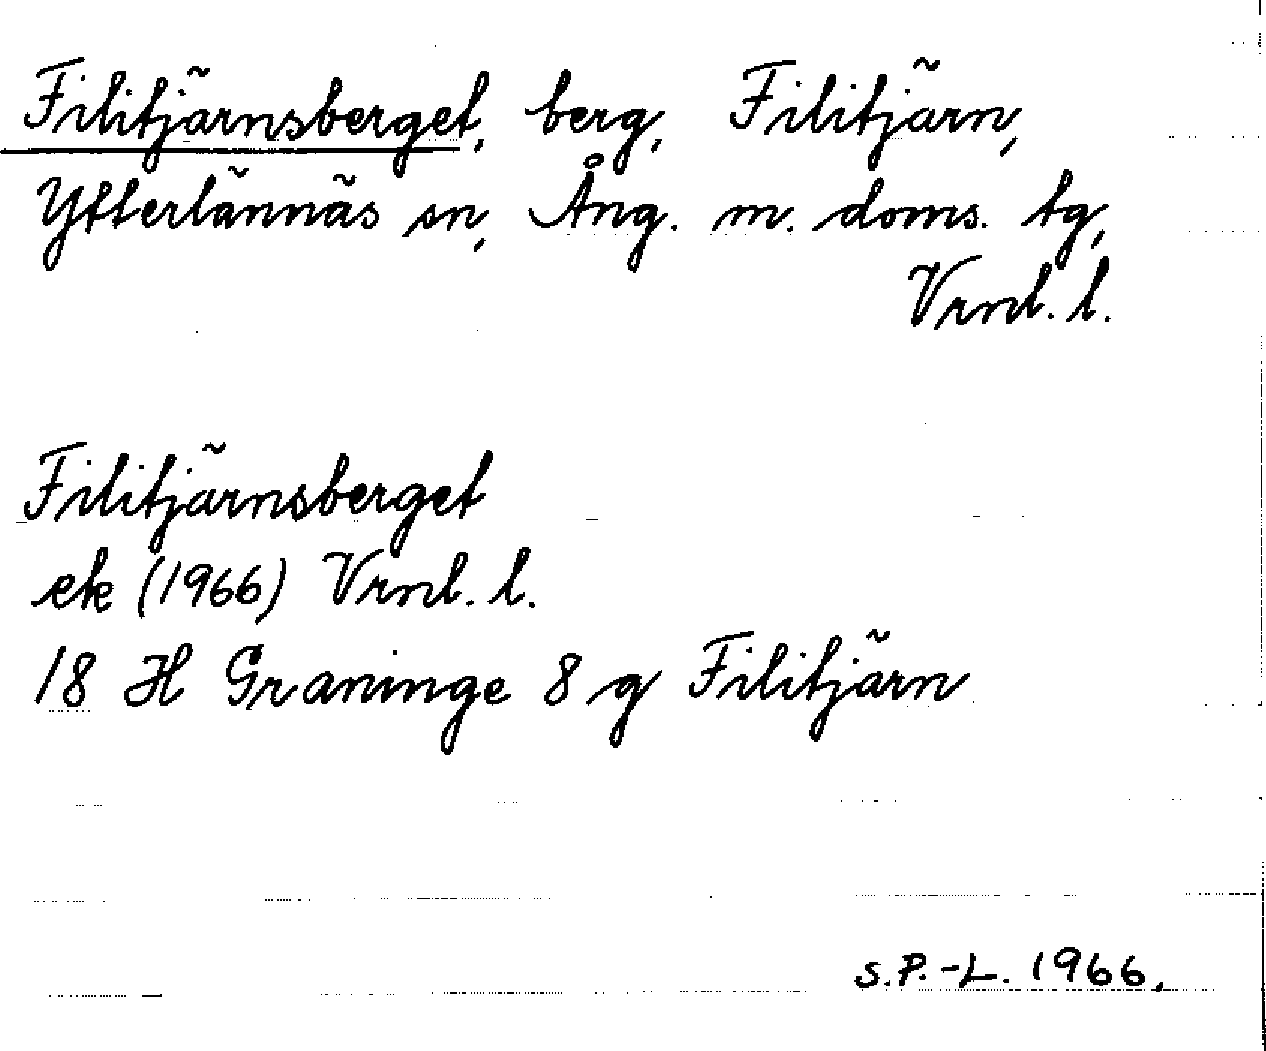 Filitjärnsberget, berg, Filitjärn,
Ytterlännäs sn, Ång. m. doms. tg,
Vrnl. l.
Filitjärnsberget
ek (1966) Vrnl. l.
18 H Graninge 8 g Filitjärn
S.P.-L. 1966.